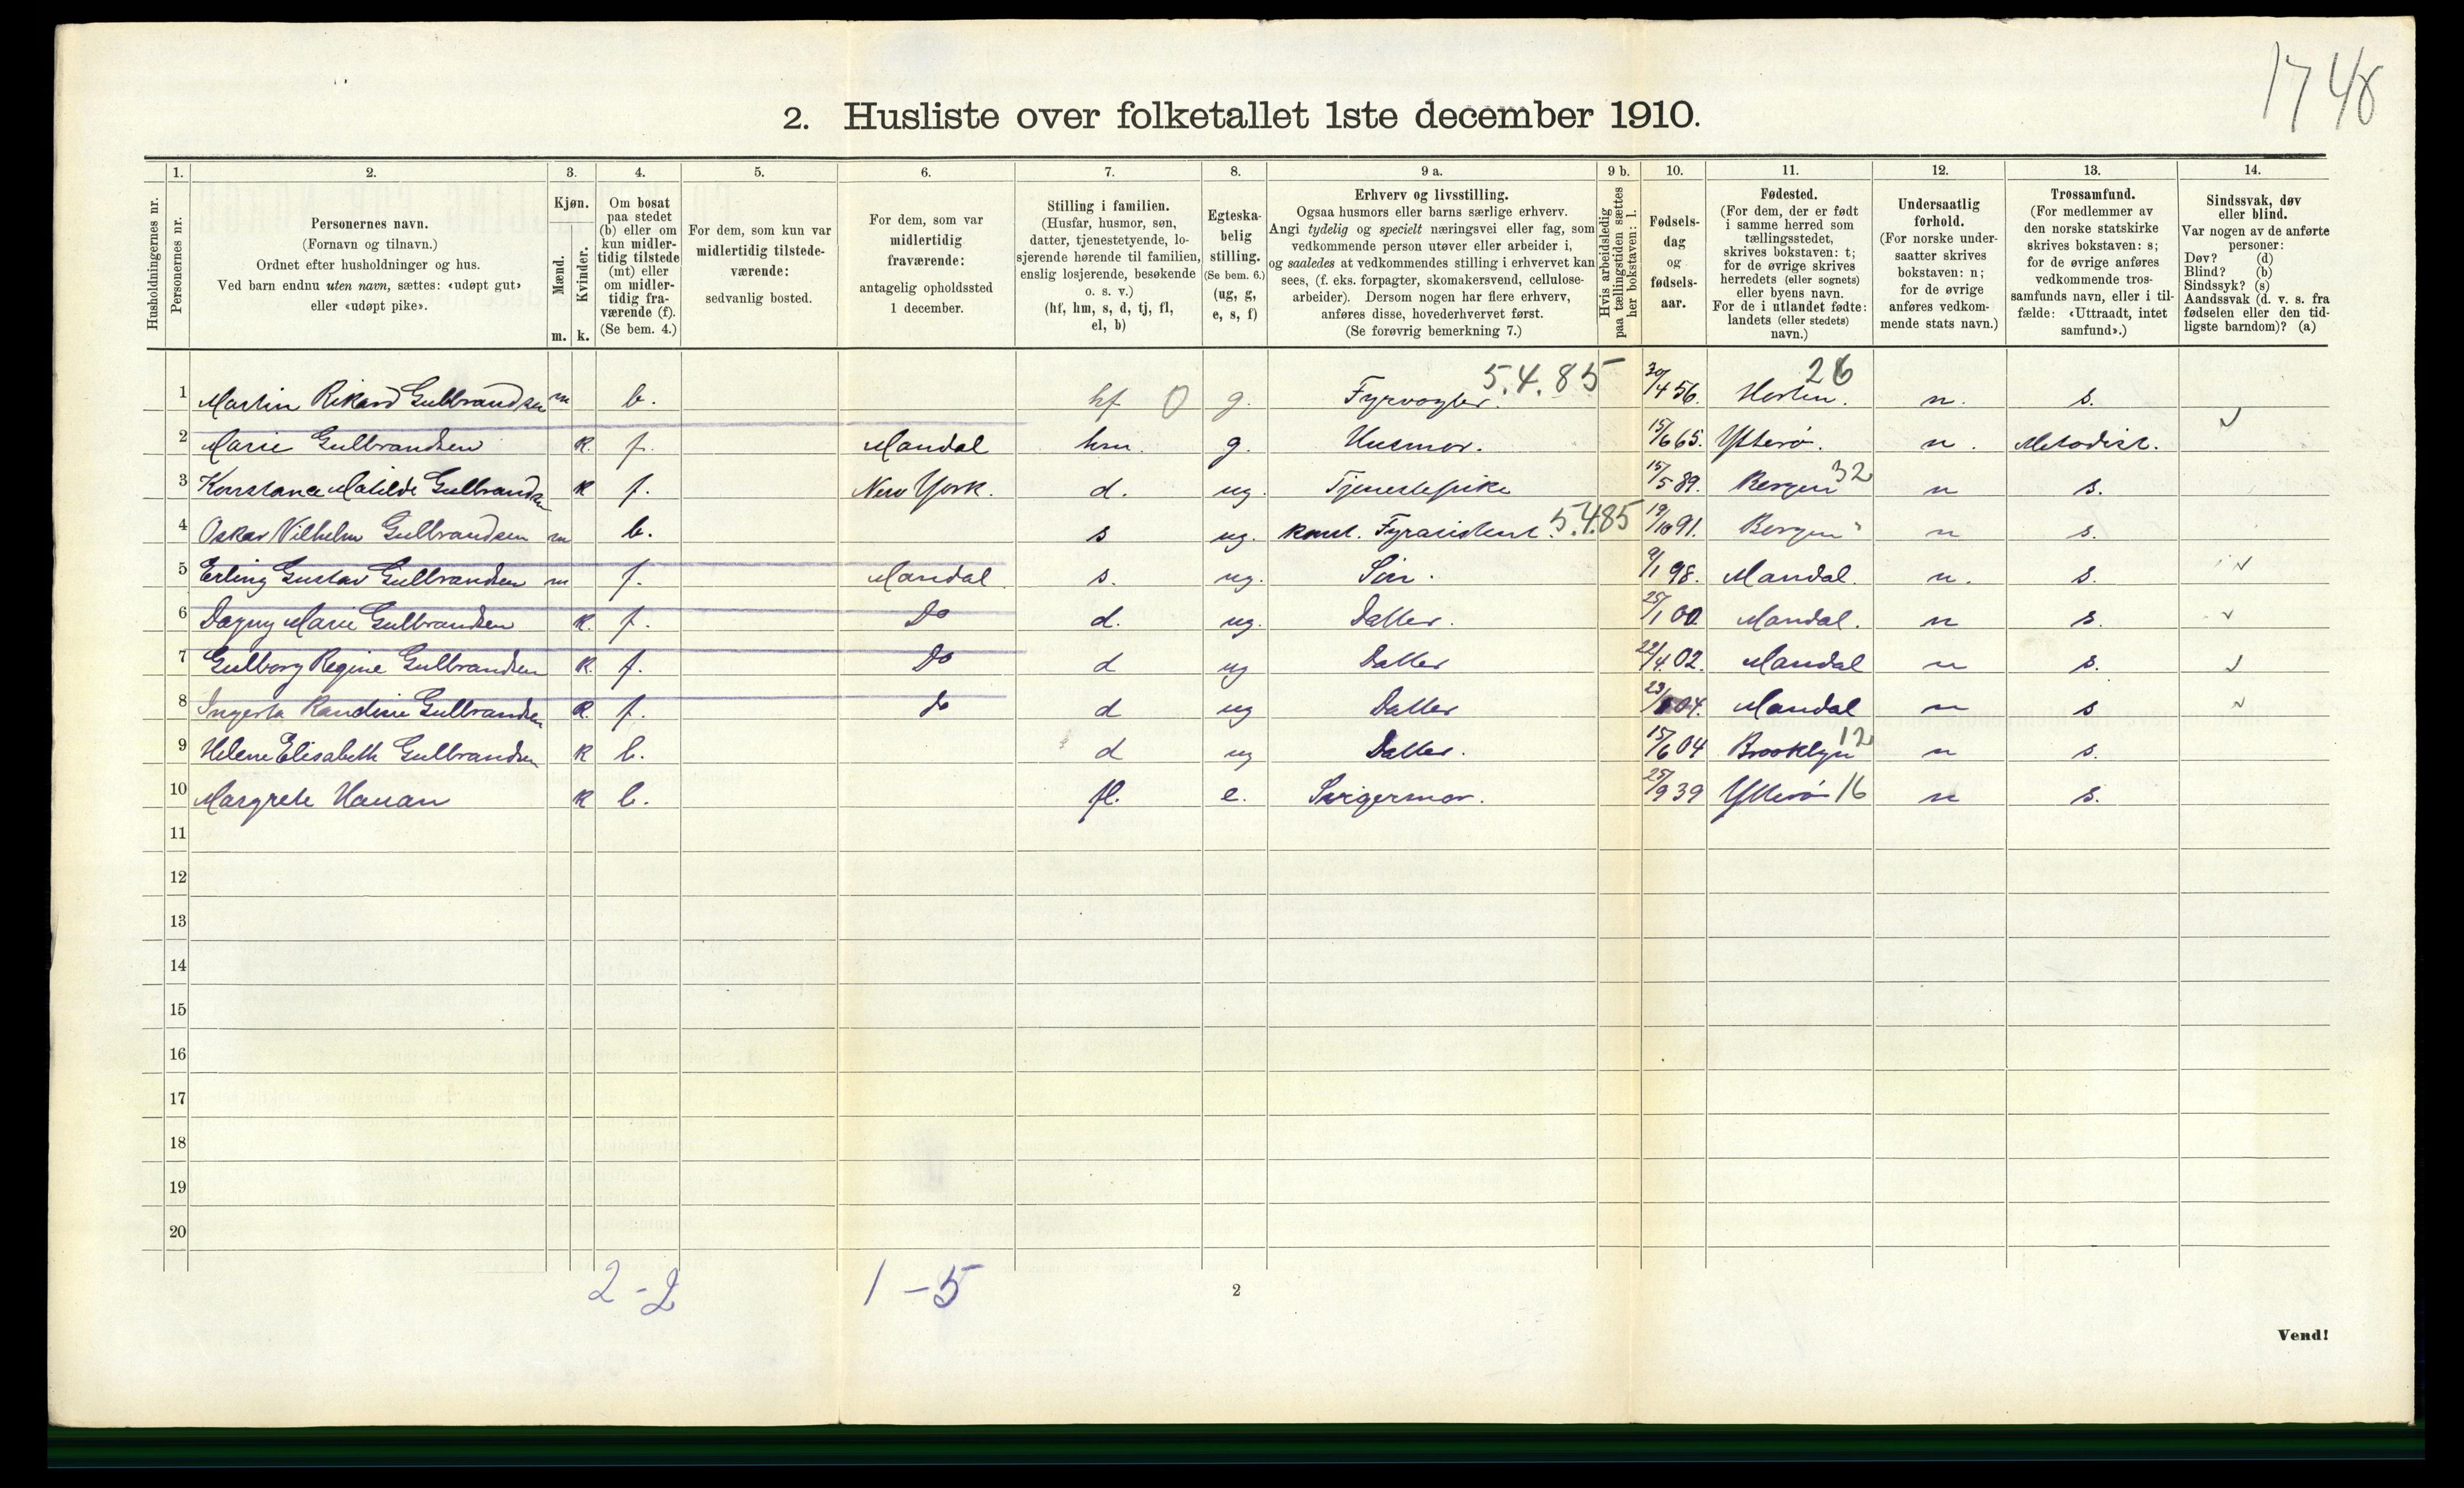 1748
2. Husliste over folketallet 1ste december 1910.
Husholdningernes nr.
1. Personernes nr.
2. Personernes navn.
(Fornavn og tilnavn.)
Ordnet efter husholdninger og hus.
Ved barn endnu uten navn, sættes: «udøpt gut»
eller «udøpt pike».
3. Kjøn.
Mænd. Kvinder.
m. k.
4. Om bosat
paa stedet
(b) eller om
kun midler-
tidig tilstede
(mt) eller
om midler-
tidig fra-
værende (f).
(Se bem. 4.)
5. For dem, som kun var
midlertidig tilstede-
værende:
sedvanlig bosted.
6. For dem, som var
midlertidig
fraværende:
antagelig opholdssted
1 december.
7. Stilling i familien.
(Husfar, husmor, søn,
datter, tjenestetyende, lo-
sjerende hørende til familien,
enslig losjerende, besøkende
o. s. v.)
(hf, hm, s, d, tj, fl,
el, b)
8. Egteska-
belig
stilling.
(Se bem. 6.)
(ug, g,
e, s, f)
9 a. Erhverv og livsstilling.
Ogsaa husmors eller barns særlige erhverv.
Angi tydelig og specielt næringsvei eller fag, som
vedkommende person utøver eller arbeider i,
og saaledes at vedkommendes stilling i erhvervet kan
sees, (f. eks. forpagter, skomakersvend, cellulose-
arbeider). Dersom nogen har flere erhverv,
anføres disse, hovederhvervet først.
(Se forøvrig bemerkning 7.)
9 b. Hvis arbeidsledig
paa tællingstiden sættes
her bokstaven: l.
10. Fødsels-
dag
og
fødsels-
aar.
11. Fødested.
(For dem, der er født
i samme herred som
tællingsstedet,
skrives bokstaven: t;
for de øvrige skrives
herredets (eller sognets)
eller byens navn.
For de i utlandet fødte:
landets (eller stedets)
navn.)
12. Undersaatlig
forhold.
(For norske under-
saatter skrives
bokstaven: n;
for de øvrige
anføres vedkom-
mende stats navn.)
13. Trossamfund.
(For medlemmer av
den norske statskirke
skrives bokstaven: s;
for de øvrige anføres
vedkommende tros-
samfunds navn, eller i til-
fælde: «Uttraadt, intet
samfund».)
14. Sindssvak, døv
eller blind.
Var nogen av de anførte
personer:
Døv? (d)
Blind? (b)
Sindssyk? (s)
Aandssvak (d. v. s. fra
fødselen eller den tid-
ligste barndom)? (a)
1 Martin Rikard Gulbrandsen m b. hf 0 g. Fyrvogter. 5.4.85 30/4 56. Horten. 26 n. s.
2 Marie Gulbrandsen k. f. Mandal hm. g. Husmor. 15/6 65. Ytterø. n. Metodist. v
3 Konstance Matilde Gulbrandsen k f. New York. d. ug. Tjenestepike 15/5 89. Bergen 32 n s.
4 Oskar Vilhelm Gulbrandsen m b. s ug. konst. Fyrassistent. 5.4.85 19/10 91. Bergen " n s.
5 Erling Gustav Gulbrandsen m f. Mandal s. ug. Søn. 9/1 98. Mandal. n. s. v
6 Dagny Marie Gulbrandsen k. f. Do d. ug. Datter. 25/1 00. Mandal. n s. v
7 Gulborg Regine Gulbrandsen k. f. Do d ug Datter 22/4 02. Mandal n s. v
8 Randine Gulbrandsen k. f. do d ug Datter 04. Mandal n s v
9 Helene Elisabeth Gulbrandsen k b. d ug Datter. 15/6 04 Brooklyn 12 n s.
10 Margrete Hauan k b. fl. e. Svigermor. 25/9 39 Ytterø 16 n s.
11
12
13
14
15
16
17
18
19
20
2-2 1-5
2
Vend!